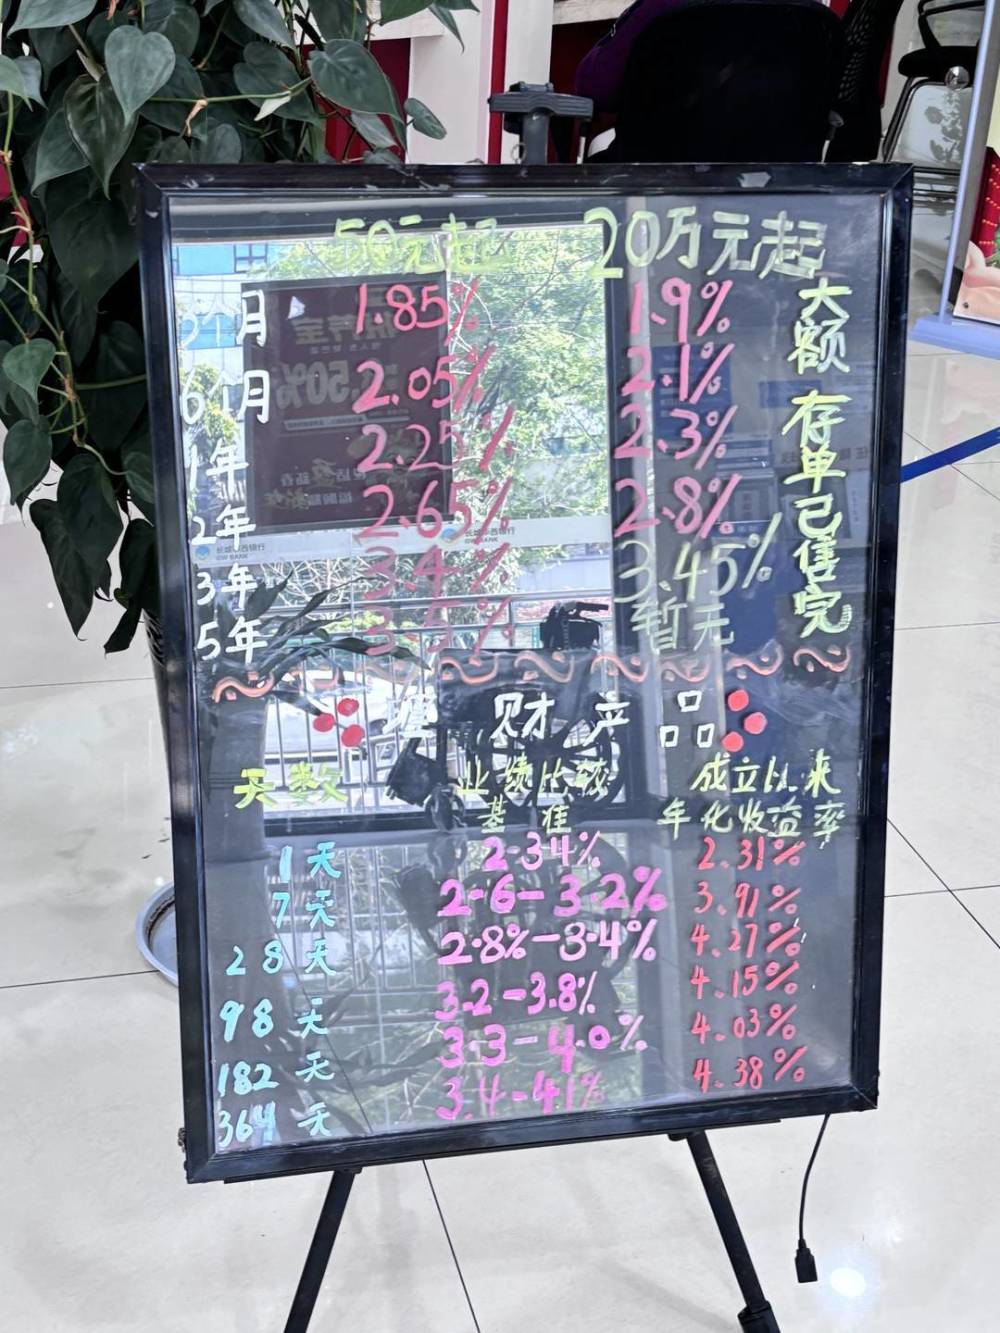 50元起 20万元起
3个月 1.85% 1.9%
6个月 2.05% 2.1%
1年 2.25% 2.3%
2年 2.65% 2.8%
3年 3.4% 3.45%
5年 3.5% 暂无
大额存单已售完
理财产品
天数 业绩比较基准 成立以来年化收益率
1天 2.34% 2.31%
7天 2.6-3.2% 3.91%
28天 2.8%-3.4% 4.27%
98天 3.2-3.8% 4.15%
182天 3.3-4.0% 4.03%
364天 3.4-4.1% 4.38%
长城华西银行
GW BANK